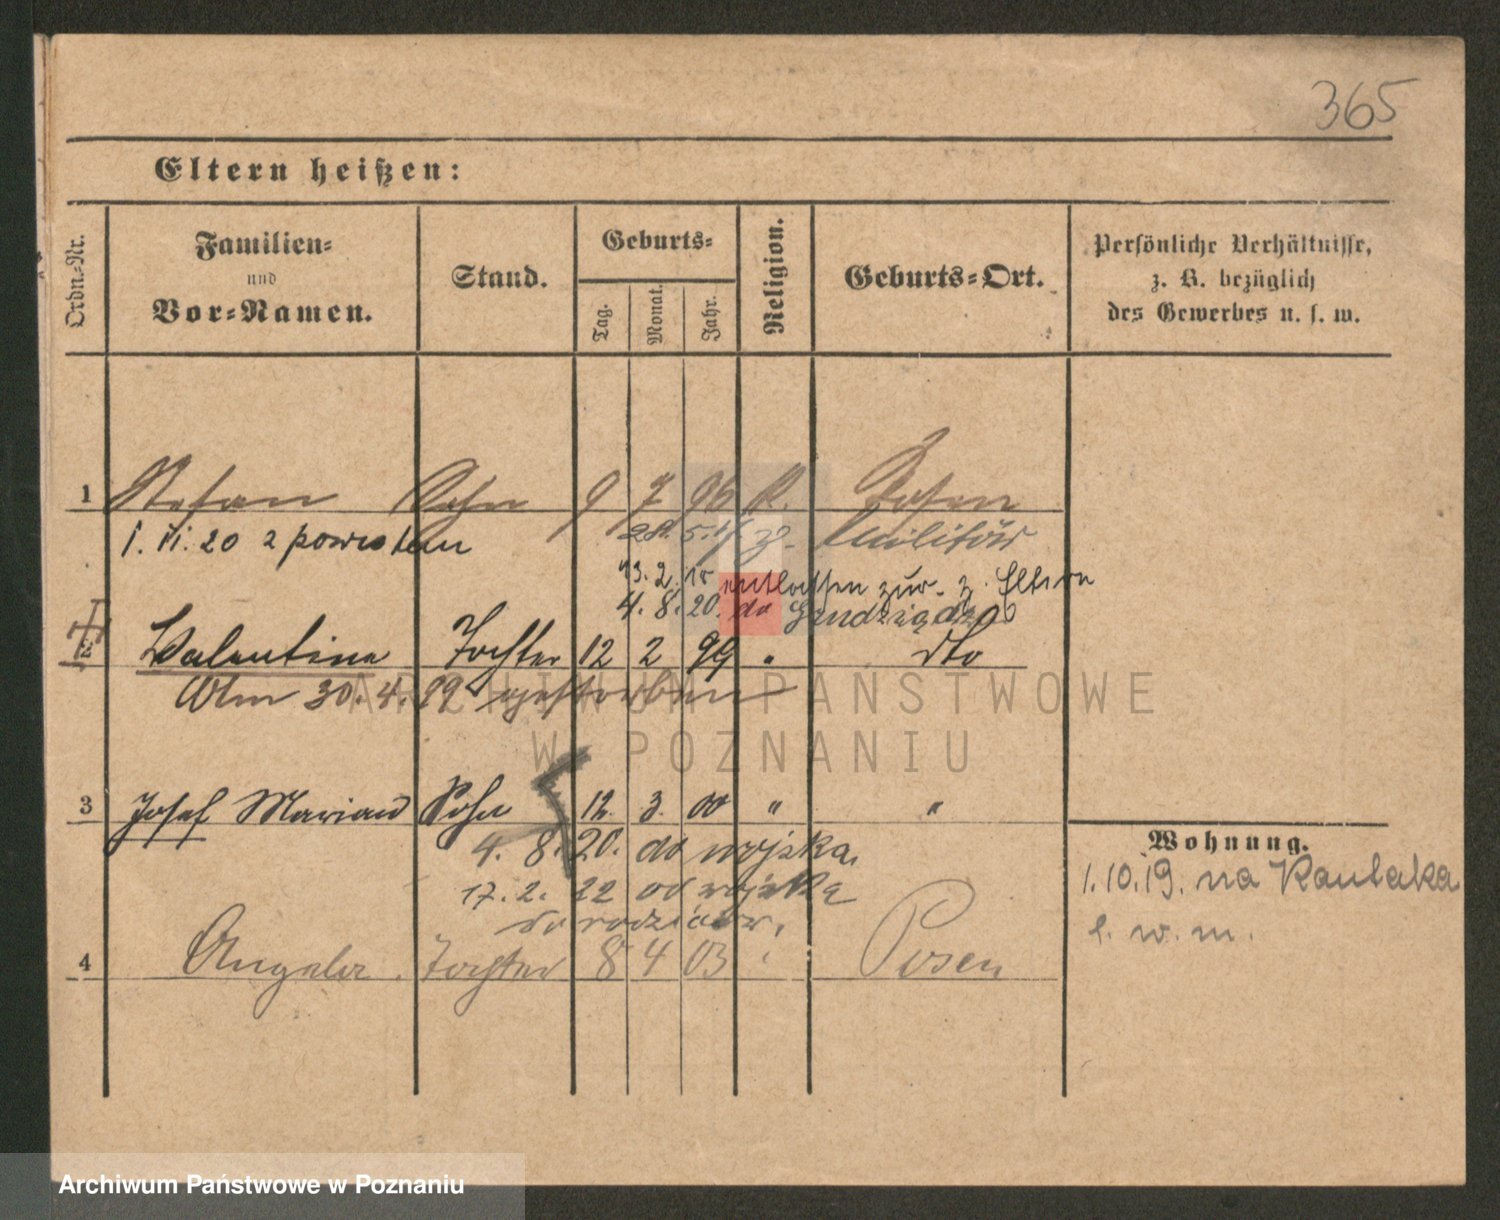 365
Eltern heißen:
Ordn.-Nr.
Familien-
und
Vor-Namen.
Stand.
Geburts-
Tag.
Monat.
Jahr.
Religion.
Geburts-Ort.
Persönliche Verhältnisse,
z. B. bezüglich
des Gewerbes u. s. w.
1 Stefan Sohn 9 7 96 K. Posen
1. VI. 20 z powrotem
z. Militär
13. 2. entlassen zur. z. Eltern
4. 8. 20. do Grudziądza
2 Valentine Tochter 12 2 99 " dto
Am 30. 4. 99 gestorben
3 Josef Marian Sohn 12. 3. 00 " "
4. 8. 20. do wojska.
17. 2. 22 od wojska
do rodziców.
4 Angela. Tochter 8 4 03 " Posen
Wohnung.
1. 10. 19. na Kantaka
w. m.
ARCHIWUM PAŃSTWOWE
W POZNANIU
Archiwum Państwowe w Poznaniu